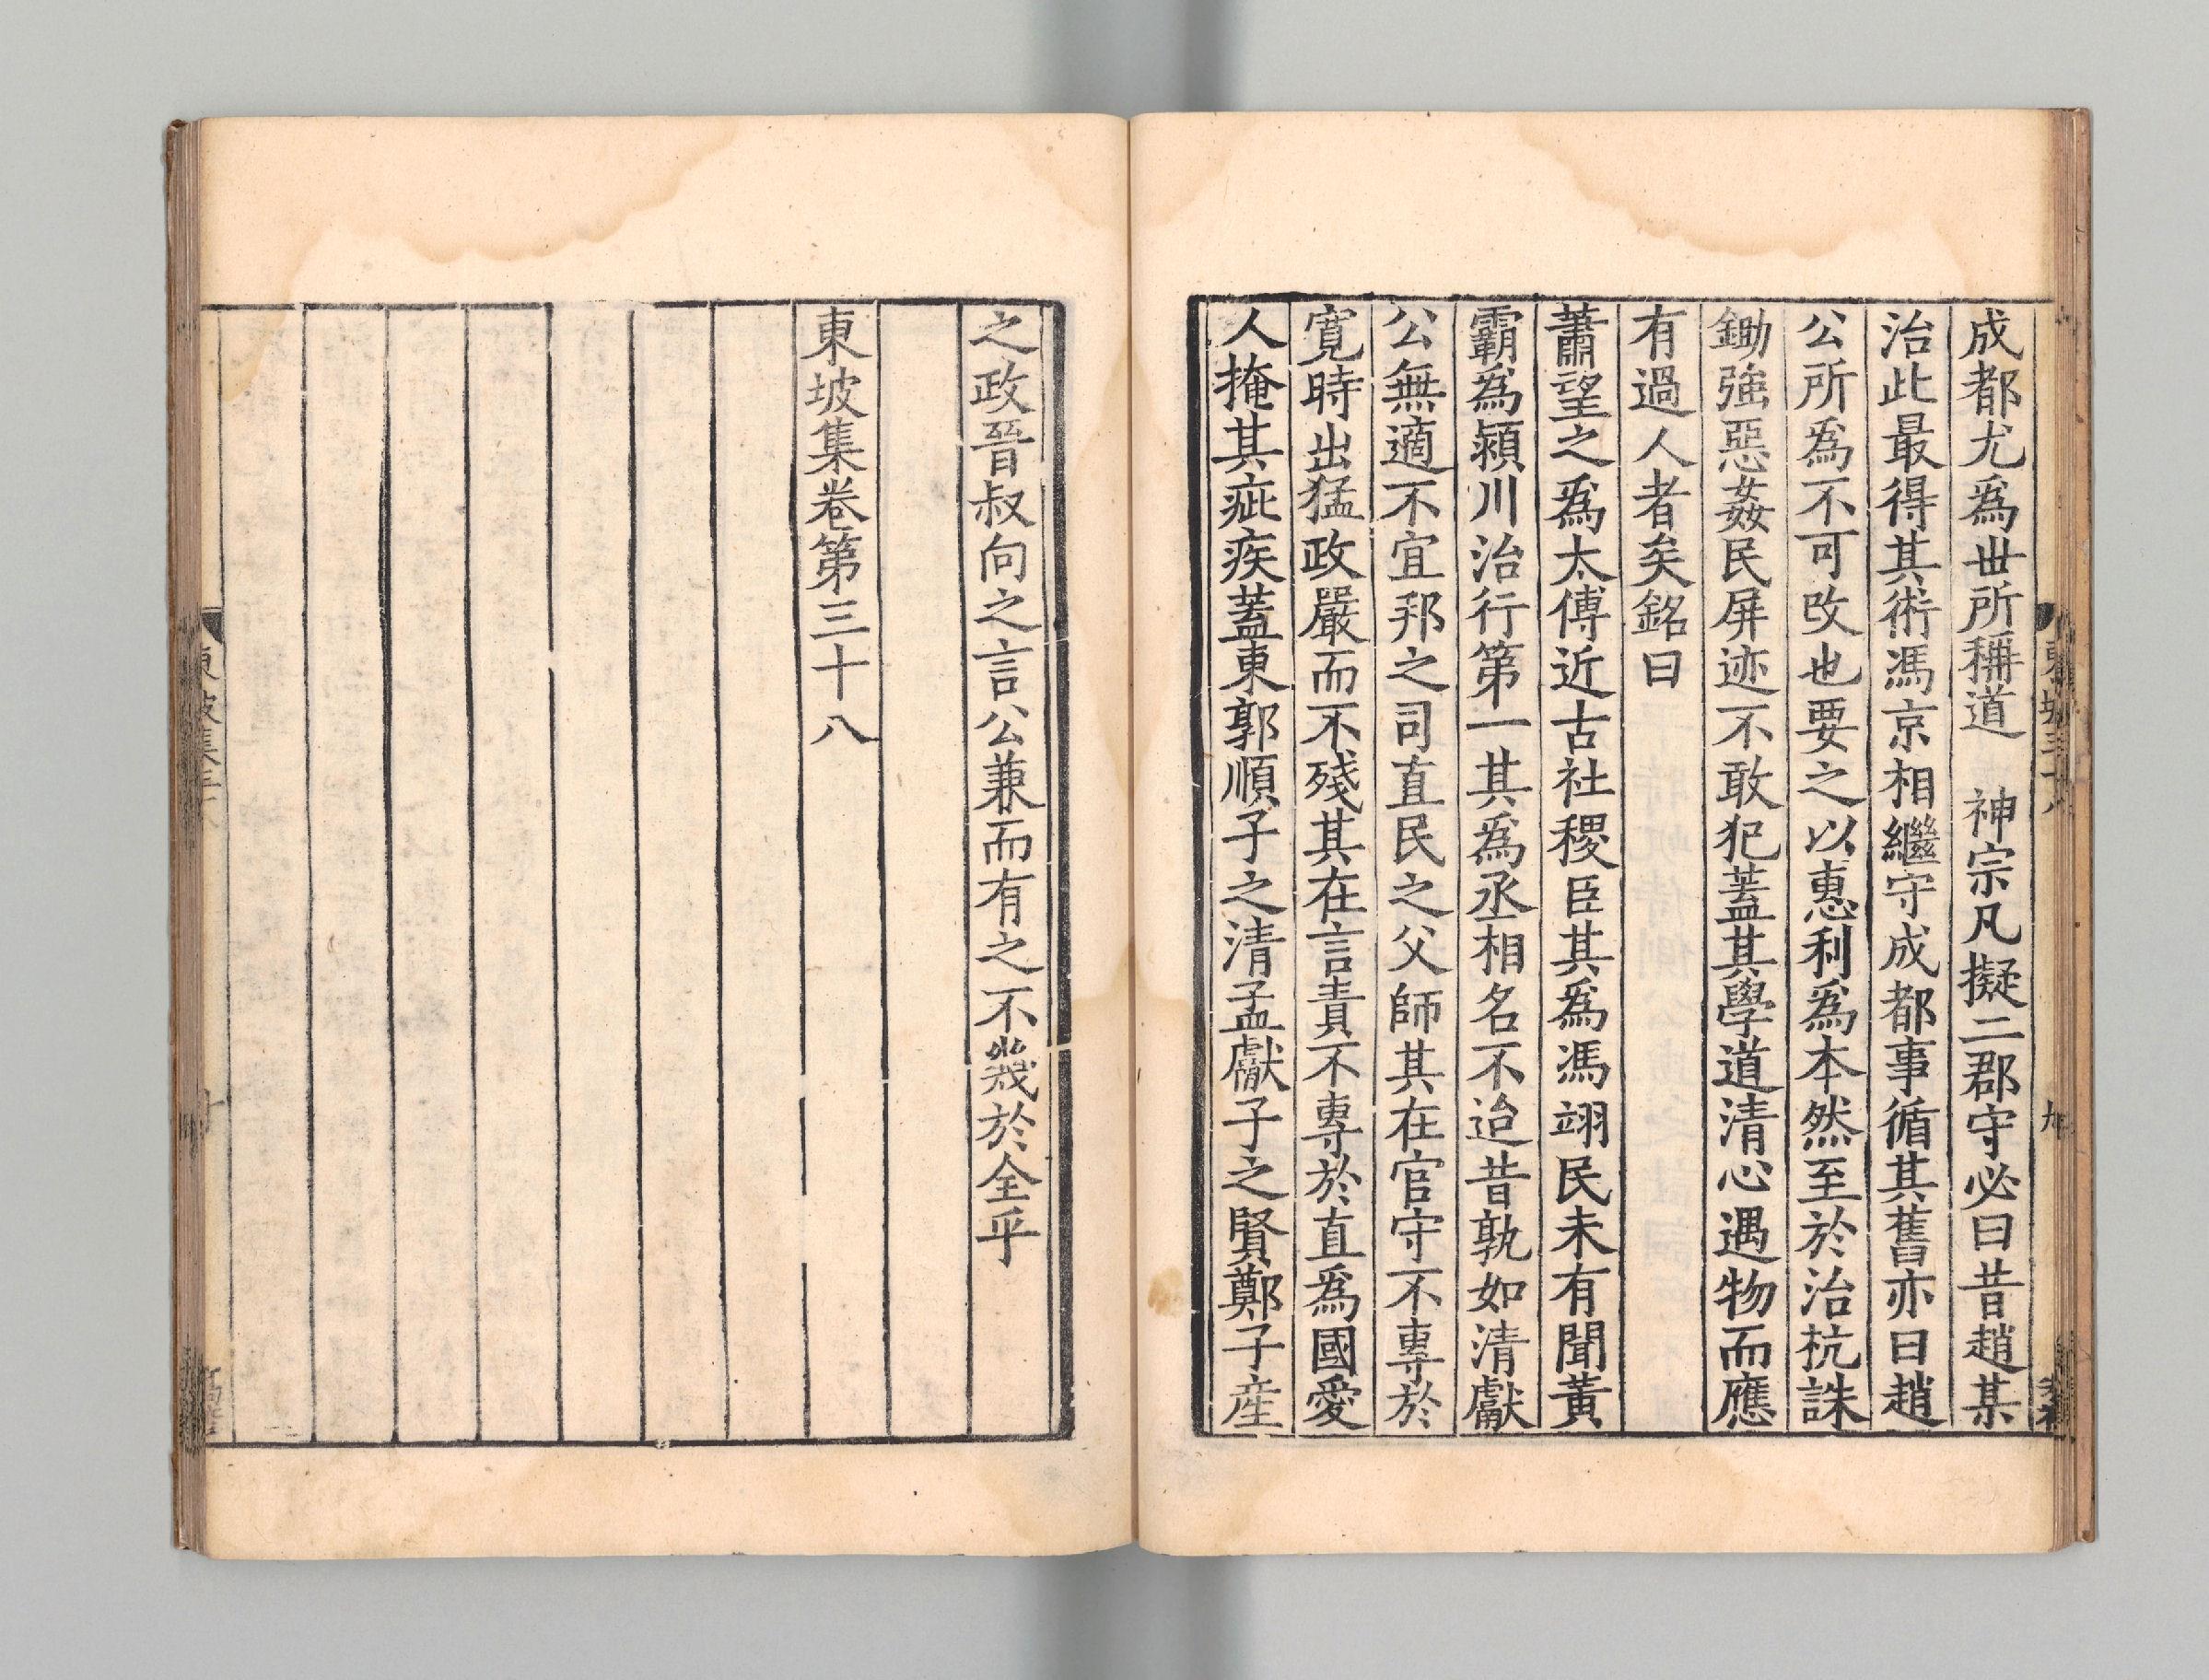 成都尤爲丗所稱道　神宗凡擬二郡守必曰昔趙某
治此最得其術馮京相繼守成都事循其舊亦曰趙
公所爲不可改也要之以惠利爲本然至於治杭誅
鋤強惡姦民屏迹不敢犯蓋其學道清心遇物而應
有過人者矣銘曰
蕭望之爲太傅近古社稷臣其爲馮翊民未有聞黃
霸爲潁川治行第一其爲丞相名不迨昔孰如清獻
公無適不宜邦之司直民之父師其在官守不專於
寬時出猛政嚴而不殘其在言責不專於直爲國愛
人掩其疵疾蓋東郭順子之清孟獻子之賢鄭子産
之政晉叔向之言公兼而有之不幾於全乎
東坡集卷第三十八